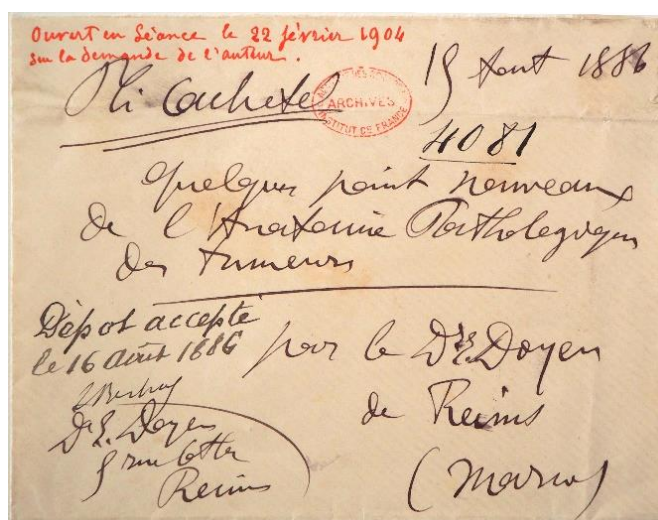 Ouvert en Séance le 22 février 1904
sur la demande de l'auteur.
Pli Cacheté
15 Aout 1886
ARCHIVES
INSTITUT DE FRANCE
4081
Quelques point nouveaux
de l'Anatomie Pathologique
des tumeurs
Dépot accepté
le 16 Août 1886
par le Dr E. Doyen
de Reims
(Marne)
Dr E. Doyen
5 rue Cotta
Reims